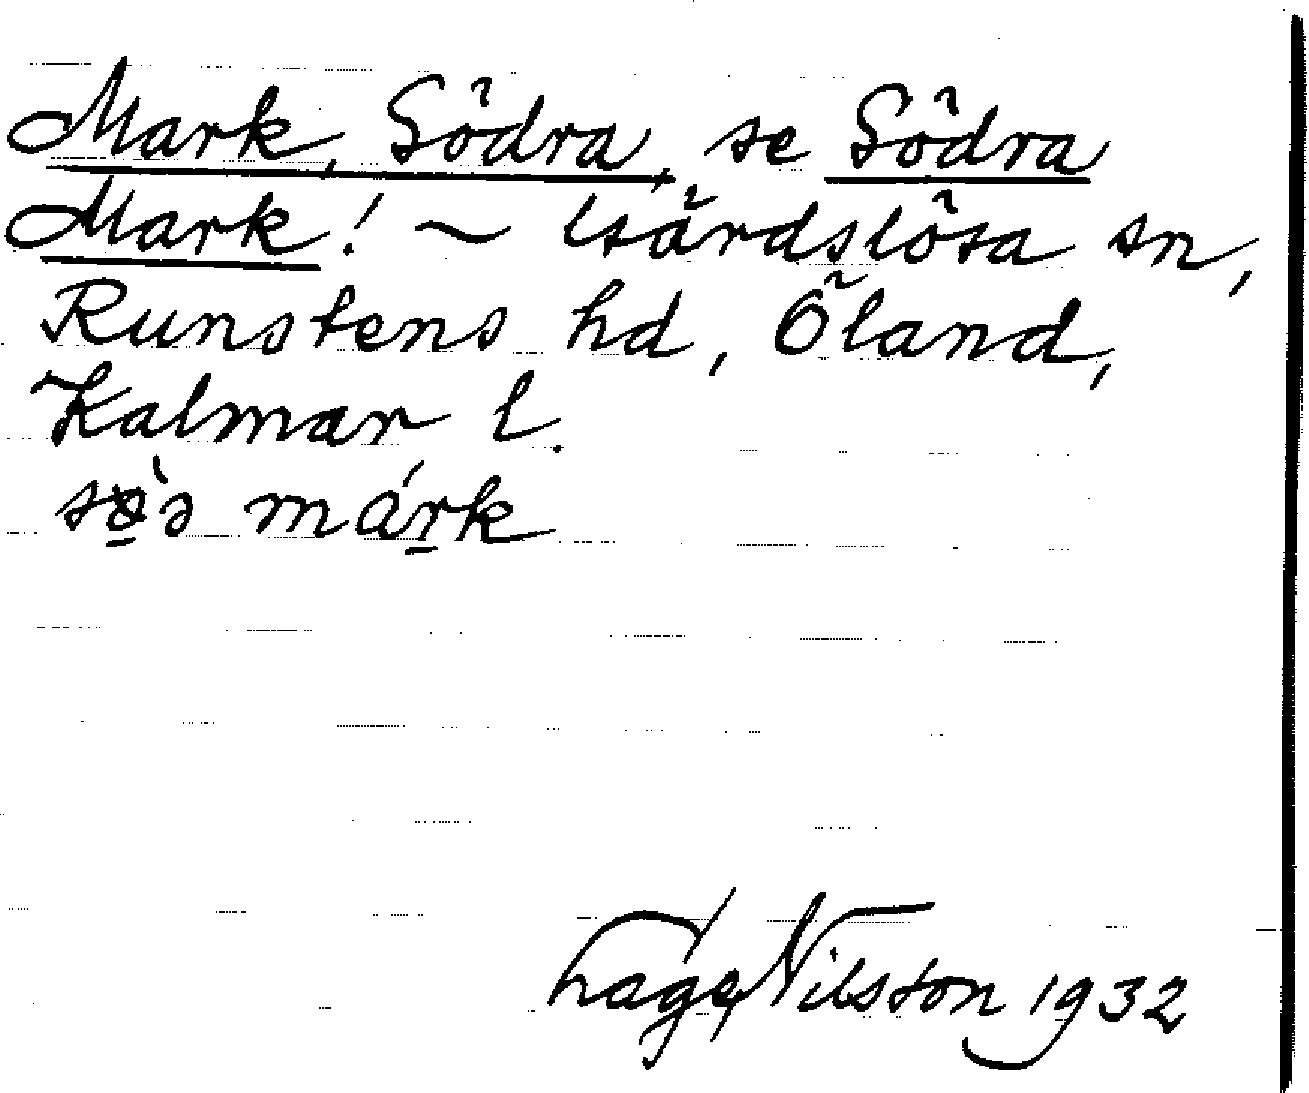 Mark, Södra, se Södra
Mark! ~ Gärdslösa sn,
Runstens hd, Öland,
Kalmar l.
márk
Tage Nilsson 1932